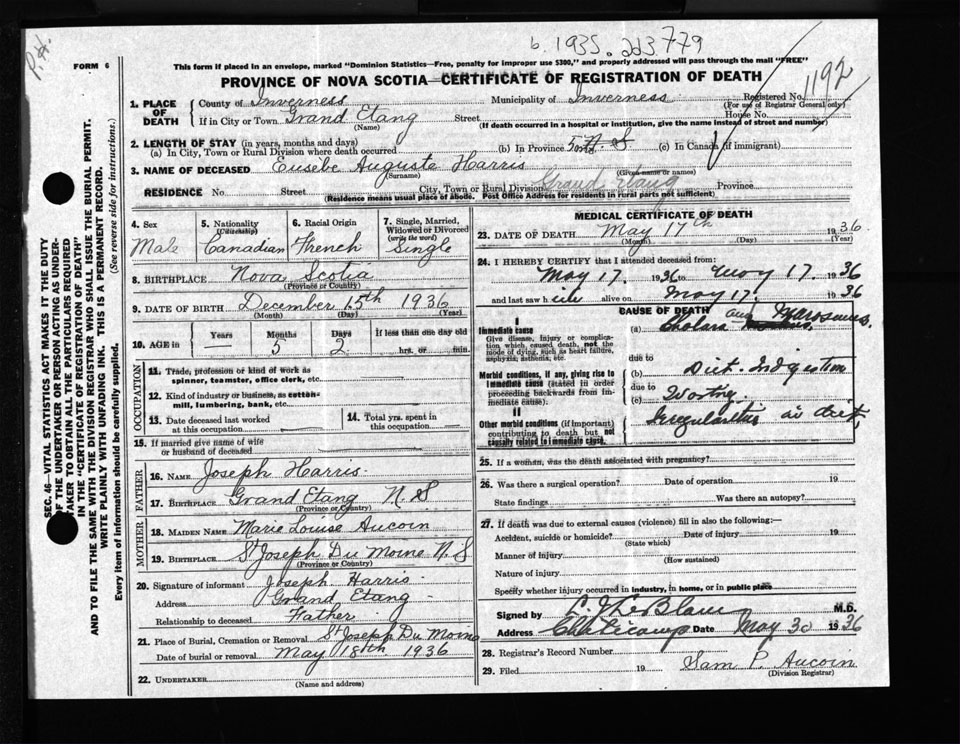 b. 1935. 2d3779
P.H.
FORM 6
This form if placed in an envelope, marked "Dominion Statistics—Free, penalty for improper use $300," and properly addressed will pass through the mail "FREE"
PROVINCE OF NOVA SCOTIA—CERTIFICATE OF REGISTRATION OF DEATH
1192
1. PLACE OF DEATH
County of Inverness Municipality of Inverness Registered No.
(For use of Registrar General only)
If in City or Town Grand Etang Street House No.
(Name) (If death occurred in a hospital or institution, give the name instead of street and number)
2. LENGTH OF STAY (in years, months and days)
(a) In City, Town or Rural Division where death occurred (b) In Province N. S (c) In Canada (if immigrant)
3. NAME OF DECEASED Eusebe Auguste Harris
(Surname) (Given name or names)
RESIDENCE No Street City, Town or Rural Division Grand Etang Province
(Residence means usual place of abode. Post Office Address for residents in rural parts not sufficient)
4. Sex
Male
5. Nationality
(Citizenship)
Canadian
6. Racial Origin
French
7. Single, Married, Widowed or Divorced
(write the word)
Single
8. BIRTHPLACE Nova Scotia
(Province or Country)
9. DATE OF BIRTH December 15th 1936
(Month) (Day) (Year)
10. AGE in Years Months Days If less than one day old
— 5 2 hrs. or min.
OCCUPATION
11. Trade, profession or kind of work as spinner, teamster, office clerk, etc.
12. Kind of industry or business, as cotton-mill, lumbering, bank, etc.
13. Date deceased last worked at this occupation
14. Total yrs. spent in this occupation
15. If married give name of wife or husband of deceased
FATHER
16. NAME Joseph Harris
17. BIRTHPLACE Grand Etang N. S
(Province or Country)
MOTHER
18. MAIDEN NAME Marie Louise Aucoin
19. BIRTHPLACE St Joseph Du Moine N. S
(Province or Country)
20. Signature of informant Joseph Harris
Address Grand Etang
Relationship to deceased Father
21. Place of Burial, Cremation or Removal St Joseph Du Moine
Date of burial or removal May 18th 1936
22. UNDERTAKER
(Name and address)
MEDICAL CERTIFICATE OF DEATH
23. DATE OF DEATH May 17th 1936
(Month) (Day) (Year)
24. I HEREBY CERTIFY that I attended deceased from:
May 17. 1936 to May 17. 1936
and last saw h alive on May 17. 1936
CAUSE OF DEATH
I
Immediate cause
Give disease, injury, or complication which caused death, not the mode of dying, such as heart failure, asphyxia, asthenia, etc.
(a) Cholera Marasmus.
due to
Morbid conditions, if any, giving rise to immediate cause (stated in order proceeding backwards from immediate cause):
(b) Diet. Indigestion
due to
(c)
II
Other morbid conditions (if important) contributing to death but not causally related to immediate cause.
Irregularities in diet.
25. If a woman, was the death associated with pregnancy?
26. Was there a surgical operation? Date of operation 19
State findings Was there an autopsy?
27. If death was due to external causes (violence) fill in also the following:—
Accident, suicide or homicide? Date of injury 19
(State which)
Manner of injury
(How sustained)
Nature of injury
Specify whether injury occurred in industry, in home, or in public place
Signed by L J LeBlanc M.D.
Address Cheticamp Date May 30 1936
28. Registrar's Record Number
29. Filed 19 Sam P. Aucoin
(Division Registrar)
SEC. 46—VITAL STATISTICS ACT MAKES IT THE DUTY
OF THE UNDERTAKER OR PERSON ACTING AS UNDERTAKER TO OBTAIN ALL THE PARTICULARS REQUIRED
IN THE "CERTIFICATE OF REGISTRATION OF DEATH"
AND TO FILE THE SAME WITH THE DIVISION REGISTRAR WHO SHALL ISSUE THE BURIAL PERMIT.
WRITE PLAINLY WITH UNFADING INK. THIS IS A PERMANENT RECORD.
Every item of information should be carefully supplied. (See reverse side for instructions.)